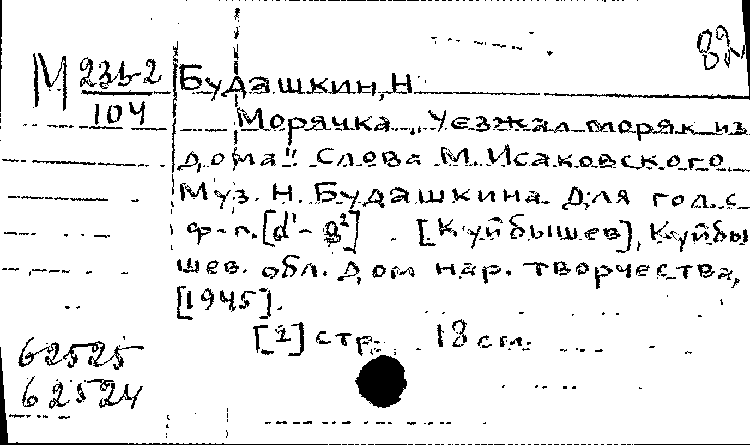 82
М 23б-2
104
Будашкин, Н.
Морячка „Уезжал моряк из
дома". Слова М. Исаковского
Муз. Н. Будашкина. Для гол. с
ф-п. [d¹-g²] [Куйбышев], Куйбы
шев. обл. дом нар. творчества,
[1945].
[2] стр. 18 см.
62525
62524